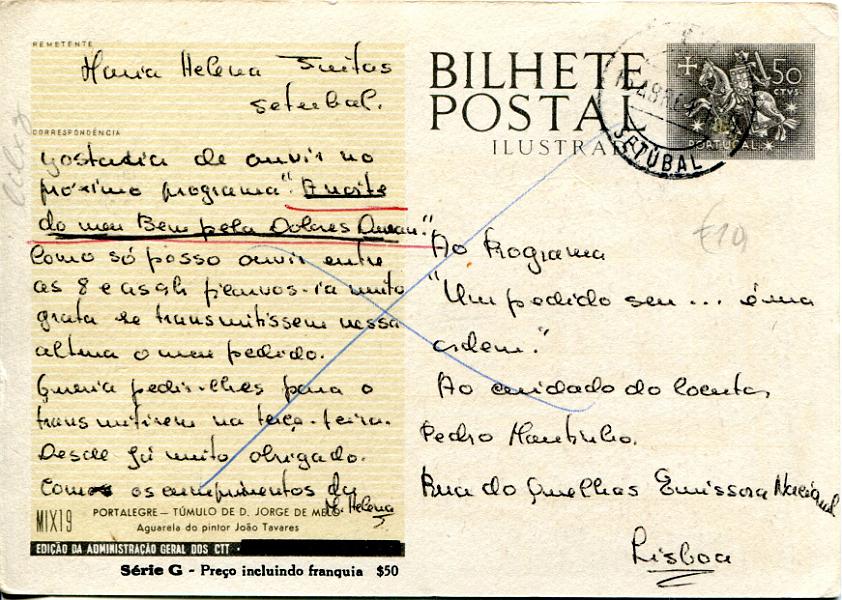 REMETENTE
Maria Helena Freitas
Setubal.
CORRESPONDÊNCIA
Gostaria de ouvir no
próximo programa "A noite
do meu Bem pela Dolores Duran."
Como só posso ouvir entre
as 8 e as 9h ficarvos-ia muito
grata se transmitissem nessa
altura o meu pedido.
Queria pedir-lhes para o
transmitirem na terça-feira.
Desde já muito obrigado.
Com os cumprimentos da
M. Helena
MIX19
PORTALEGRE — TÚMULO DE D. JORGE DE MELO
Aguarela do pintor João Tavares
EDIÇÃO DA ADMINISTRAÇÃO GERAL DOS CTT
Série G - Preço incluindo franquia $50
BILHETE
POSTAL
ILUSTRAD
$50
CTVS.
PORTUGAL
SETÚBAL
€19
Ao Programa
"Um pedido seu... é uma
ordem."
Ao cuidado do locutor
Pedro Moutinho.
Rua do Quelhas Emissora Nacional
Lisboa